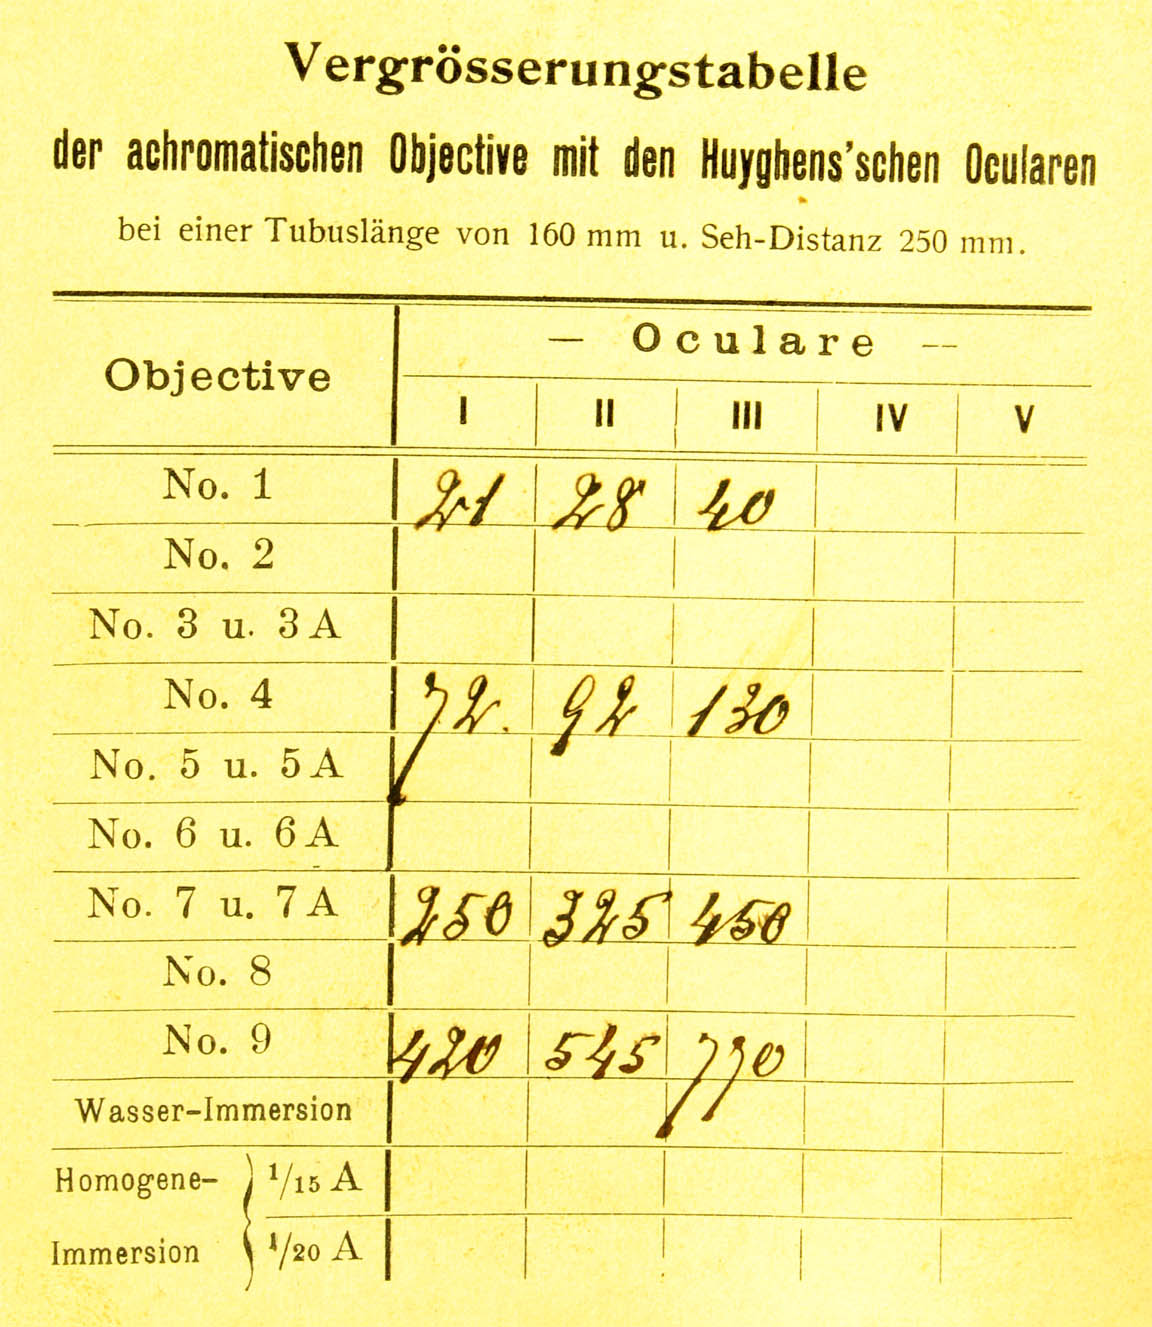 Vergrösserungstabelle
der achromatischen Objective mit den Huyghens'schen Ocularen
bei einer Tubuslänge von 160 mm u. Seh-Distanz 250 mm.
Objective — Oculare —
I II III IV V
No. 1 21 28 40
No. 2
No. 3 u. 3 A
No. 4 72. 92 130
No. 5 u. 5 A
No. 6 u. 6 A
No. 7 u. 7 A 250 325 450
No. 8
No. 9 420 545 770
Wasser-Immersion
Homogene- 1/15 A
Immersion 1/20 A